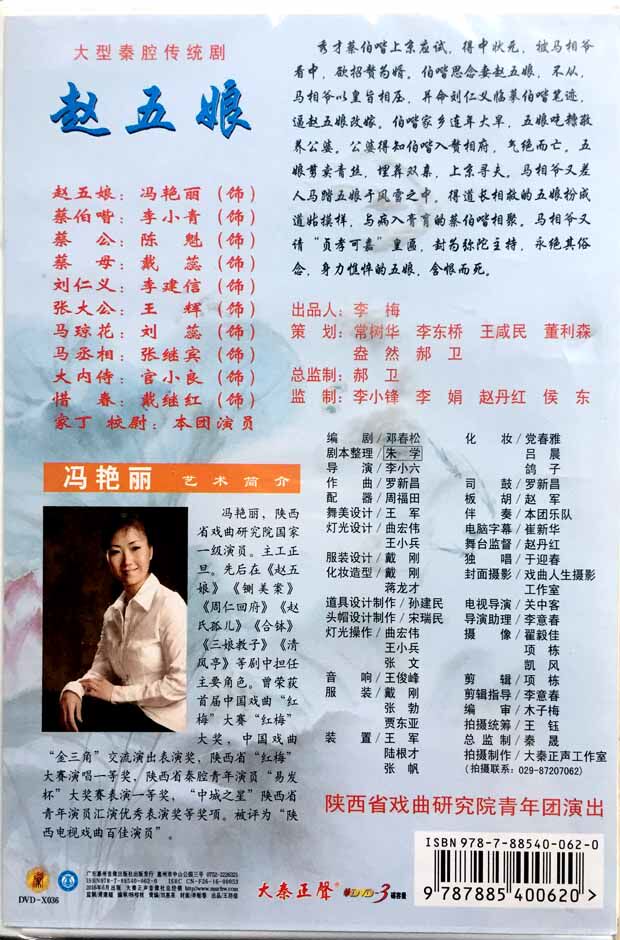 大型秦腔传统剧
赵五娘
赵五娘：冯艳丽（饰）
蔡伯喈：李小青（饰）
蔡 公：陈 魁（饰）
蔡 母：戴 蕊（饰）
刘仁义：李建信（饰）
张大公：王 辉（饰）
马琼花：刘 蕊（饰）
马丞相：张继宾（饰）
大内侍：官小良（饰）
惜 春：戴继红（饰）
家丁 校尉：本团演员
秀才蔡伯喈上京应试，得中状元，被马相爷
看中，欲招赘为婿。伯喈思念妻赵五娘，不从，
马相爷以皇旨相压，并命刘仁义临摹伯喈笔迹，
逼赵五娘改嫁。伯喈家乡连年大旱，五娘吃糠敬
养公婆。公婆得知伯喈入赘相府，气绝而亡。五
娘剪卖青丝，埋葬双亲，上京寻夫。马相爷又差
人马踏五娘于风雪之中。得道长相救的五娘扮成
道姑摸样，与病入膏肓的蔡伯喈相聚。马相爷又
请“贞孝可嘉”皇匾，封为弥陀主持，永绝其俗
念，身力憔悴的五娘，含恨而死。
出品人：李 梅
策 划：常树华 李东桥 王咸民 董利森
盎 然 郝 卫
总监制：郝 卫
监 制：李小锋 李 娟 赵丹红 侯 东
冯艳丽 艺术简介
冯艳丽，陕西
省戏曲研究院国家
一级演员。主工正
旦。先后在《赵五
娘》《铡美案》
《周仁回府》《赵
氏孤儿》《合钵》
《三娘教子》《清
风亭》等剧中担任
主要角色。曾荣获
首届中国戏曲“红
梅”大赛“红梅”
大奖，中国戏曲
“金三角”交流演出表演奖，陕西省“红梅”
大赛演唱一等奖，陕西省秦腔青年演员“易发
杯”大奖赛表演一等奖，“中城之星”陕西省
青年演员汇演优秀表演奖等奖项。被评为“陕
西电视戏曲百佳演员”。
编 剧/邓春松
剧本整理/朱 学
导 演/李小六
作 曲/罗新昌
配 器/周福田
舞美设计/王 军
灯光设计/曲宏伟
王小兵
服装设计/戴 刚
化妆造型/戴 刚
蒋龙才
道具设计制作/孙建民
头帽设计制作/宋瑞民
灯光操作/曲宏伟
王小兵
张 文
音 响/王俊峰
服 装/戴 刚
张 勃
贾东亚
装 置/王 军
陆根才
张 帆
化 妆/党春雅
吕 晨
鸽 子
司 鼓/罗新昌
板 胡/赵 军
伴 奏/本团乐队
电脑字幕/崔新华
舞台监督/赵丹红
独 唱/于迎春
封面摄影/戏曲人生摄影
工作室
电视导演/关中客
导演助理/李意春
摄 像/翟毅佳
项 栋
凯 风
剪 辑/项 栋
剪辑指导/李意春
编 审/木子梅
拍摄统筹/王 钰
总 监 制/秦 晟
拍摄制作/大秦正声工作室
（拍摄联系：029-87207062）
陕西省戏曲研究院青年团演出
ISBN 978-7-88540-062-0
9 787885 400620
DVD-X036
大秦正聲